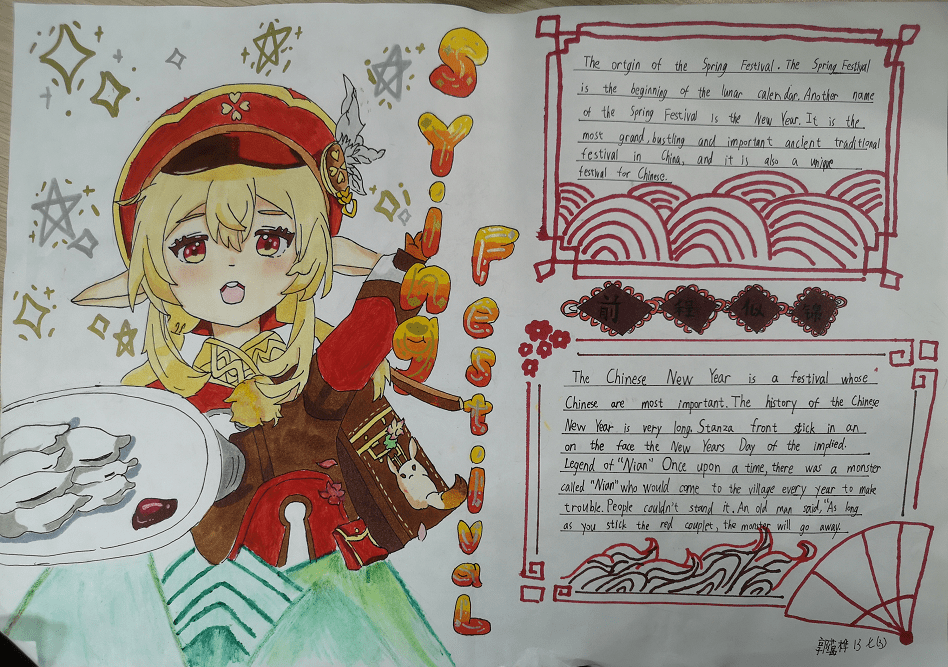 Sying
FestivaL
The origin of the Spring Festival. The Spring Festival
is the beginning of the lunar calendar. Another name
of the Spring Festival is the New Year. It is the
most grand, bustling and important ancient traditional
festival in China, and it is also a unique
festival for Chinese.
前程似锦
The Chinese New Year is a festival whose
Chinese are most important. The history of the Chinese
New Year is very long. Stanza front stick in an
on the face the New Years Day of the implied.
Legend of "Nian" Once upon a time, there was a monster
called "Nian" who would come to the village every year to make
trouble. People couldn't stand it. An old man said, "As long
as you stick the red couplet, the monster will go away.